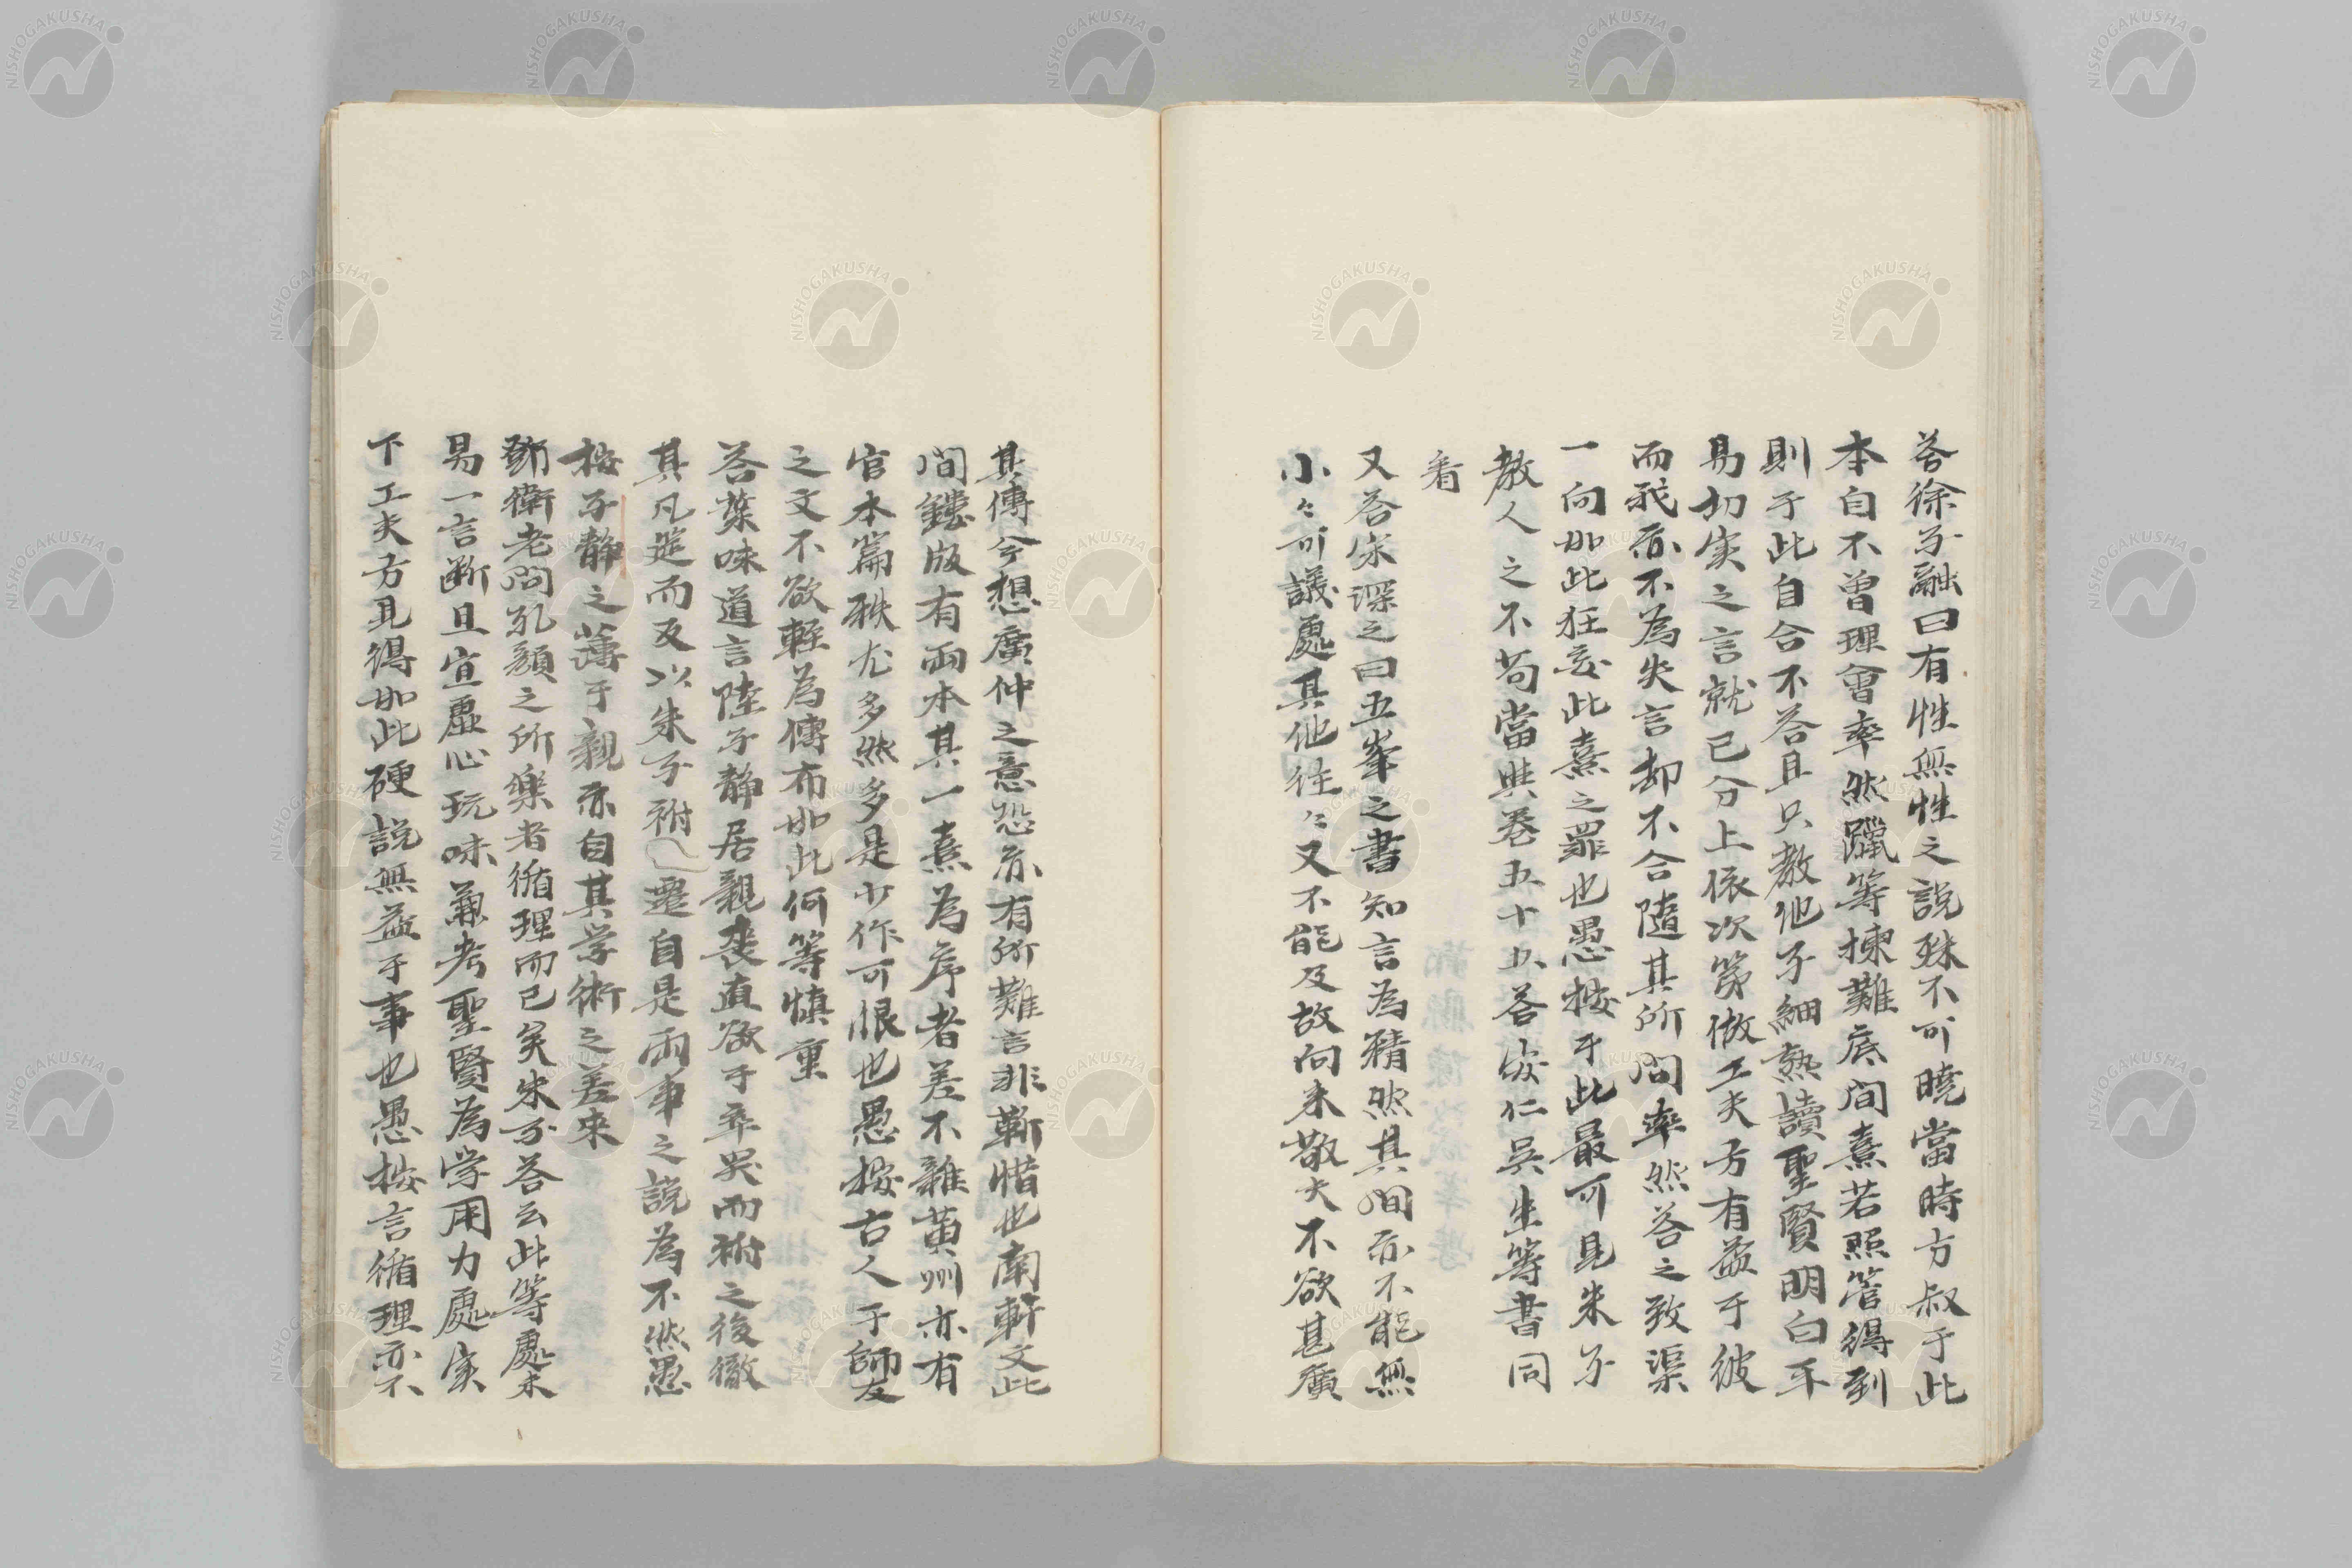 答徐子融曰有性無性之說殊不可曉當時方叔于此
本自不曾理會率然躐等揀難底問熹若照管得到
則于此自合不答且只教他子細熟讀聖賢明白平
易切实之言就已分上依次第做工夫方有益于彼
而我亦不為失言却不合隨其所問率然答之致渠
一向如此狂妄此熹之罪也愚按于此最可見朱子
教人之不苟當與卷五十五答安仁吳生等書同
看
又答宋深之曰五峯之書知言為精然其間亦不能無
小々可議處其他往々又不能及故向来敬夫不欲甚廣
其傳今想廣仲之意恐亦有所難言非靳惜也南軒文此
間鏤版有兩本其一熹為序者差不雜黄州亦有
官本篇秩尤多然多是少作可恨也愚按古人于師友
之文不欲輕為傳布如此何等慎重
答葉味道言陸子静居親喪直欲于卒哭而祔之後徹
其几筵而及以朱子祔遷自是兩事之說為不然愚
按子静之薄于親亦自其学術之差来
鄧衛老問孔顏之所樂者循理而已矣朱子答云此等處未
易一言断且宜虚心玩味兼考聖賢為学用力處实
下工夫方見得如此硬說無益于事也愚按言循理亦不
NISHOGAKUSHA